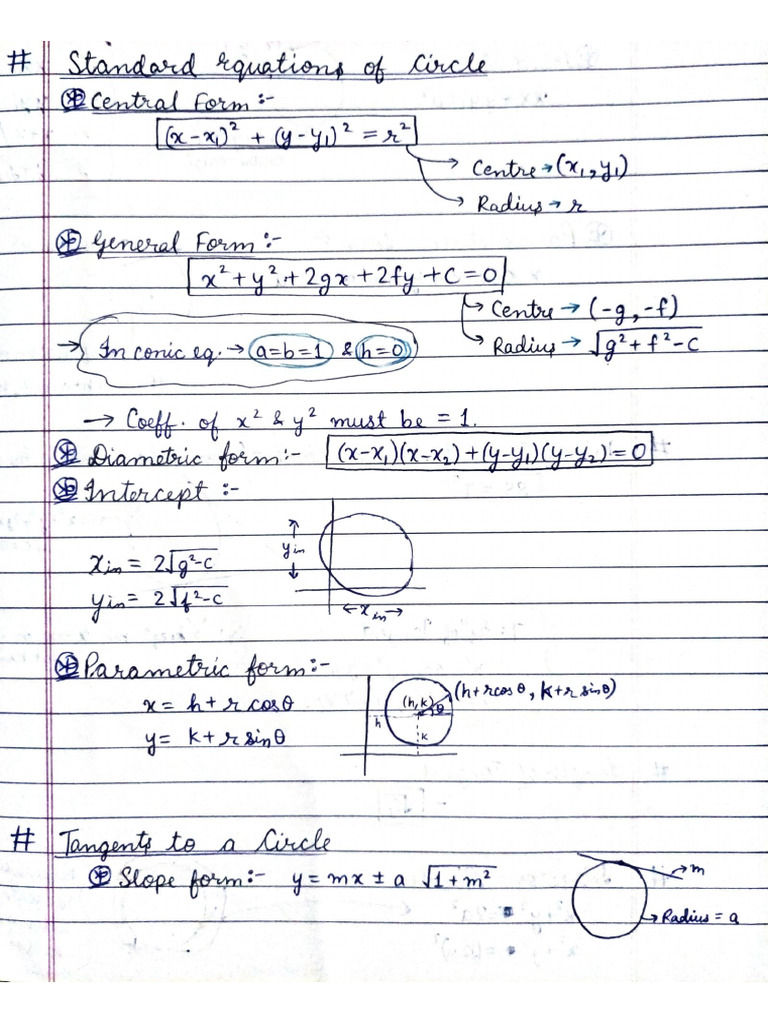 # Standard Equations of Circle
⊛ Central Form :-
(x-x₁)² + (y-y₁)² = r²
→ Centre → (x₁, y₁)
→ Radius → r
⊛ General Form :-
x² + y² + 2gx + 2fy + C = 0
→ Centre → (-g, -f)
→ In conic eq. → a=b=1 & h=0
→ Radius → √(g² + f² - c)
→ Coeff. of x² & y² must be = 1.
⊛ Diametric form :- (x-x₁)(x-x₂) + (y-y₁)(y-y₂) = 0
⊛ Intercept :-
y in
x in = 2√(g²-c)
y in = 2√(f²-c)
← x in →
⊛ Parametric form :-
x = h + r cosθ
y = k + r sinθ
(h+rcosθ, k+r sinθ)
(h,k) θ
h
k
# Tangents to a Circle
⊛ Slope form :- y = mx ± a √(1+m²)
→ m
→ Radius = a